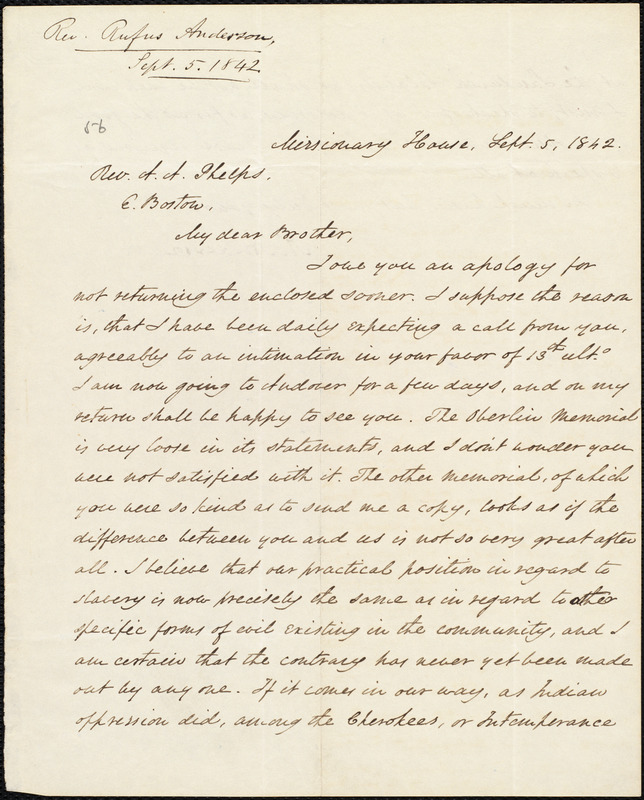 Rev. Rufus Anderson,
Sept. 5. 1842
56
Missionary House, Sept. 5, 1842.
Rev. A. A. Phelps,
E. Boston,
My dear Brother,
I owe you an apology for
not returning the enclosed sooner. I suppose the reason
is, that I have been daily expecting a call from you,
agreeably to an intimation in your favor of 13th ulto.
I am now going to Andover for a few days, and on my
return shall be happy to see you. The Oberlin Memorial
is very loose in its statements, and I don't wonder you
were not satisfied with it. The other memorial, of which
you were so kind as to send me a copy, looks as if the
difference between you and us is not so very great after
all. I believe that our practical position in regard to
slavery is now precisely the same as in regard to other
specific forms of evil existing in the community, and I
am certain that the contrary has never yet been made
out by any one. If it comes in our way, as Indian
oppression did, among the Cherokees, or Intemperance